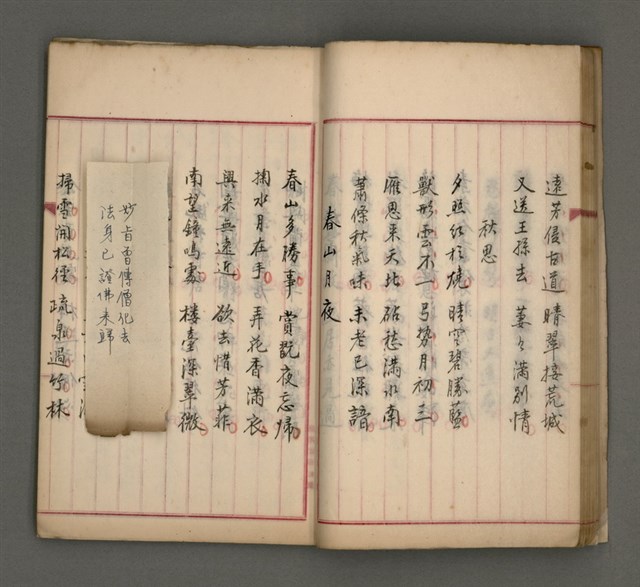 遠芳侵古道 晴翠接荒城
又送王孫去 萋々滿別情
秋思
夕照紅於燒 晴空碧勝藍
獸形雲不一 弓勢月初三
雁思來天北 砧愁滿水南
蕭條秋氣味 未老已深諳
春山月夜
春山多勝事 賞翫夜忘歸
掬水月在手 弄花香滿衣
興來無遠近 欲去惜芳菲
南望鐘鳴處 樓臺深翠微
妙旨曾傳僧化去
法身已證佛來歸
掃雪開松徑 疏泉過竹林